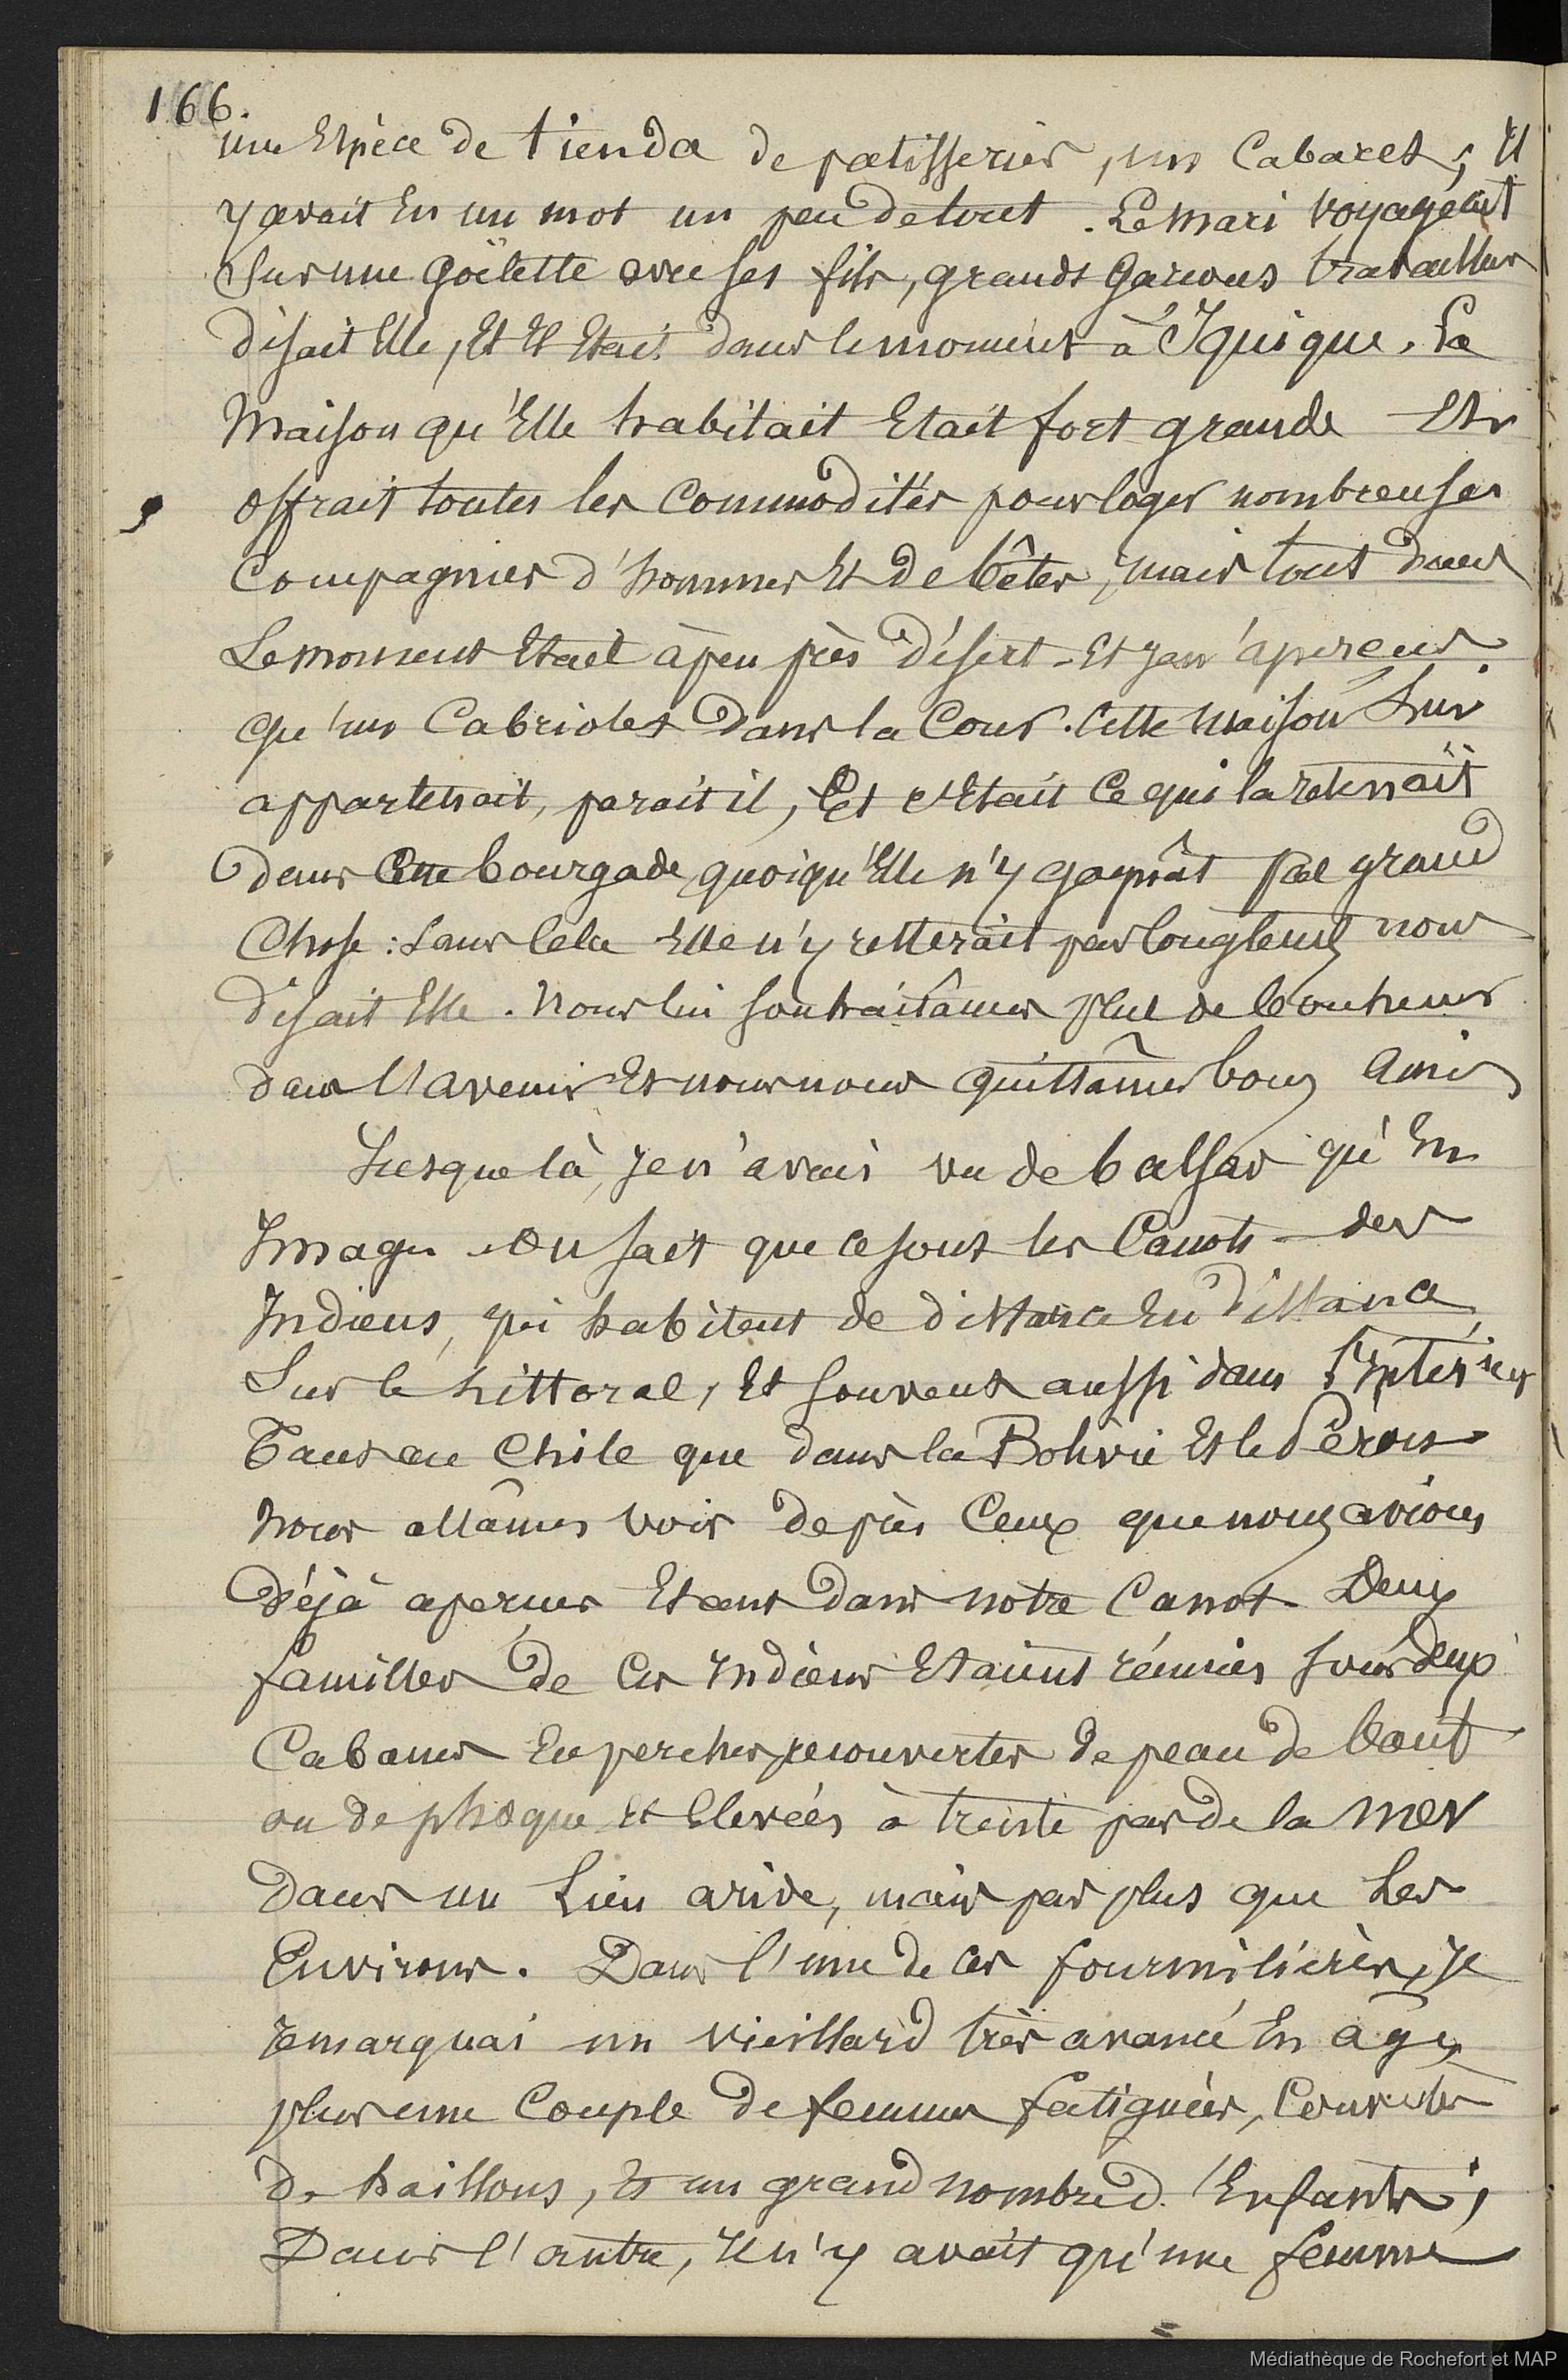 166.
une Espèce de tienda de patisseries, un Cabaret; Il
y avait En un mot un peu de tout. Le mari voyageait
Sur une Goëlette avec ses fils, grands Garcons travailleurs
disait Elle, Et Il Etait dans le moment à Iquique. La
Maison qu'Elle habitait Etait fort grande Et
offrait toutes les Commodités pour loger nombreuses
Compagnies d'hommes Et de bêtes, mais tout dans
Le moment Etait à peu près désert - Et je n'aperçus
qu'un Cabriolet dans la Cour. Cette maison lui
appartenait, parait il, Et c'Etait Ce qui la retenait
dans Cette bourgade, quoiqu'Elle n'y gagnât pas grand
Chose : Sans Cela Elle n'y resterait pas longtems nous
disait Elle. Nous lui souhaitâmes plus de bonheur
dans l'avenir Et nous nous quittâmes bons Amis
Jusque là, Je n'avais vu de balsas qu'En
Images. On sait que ce sont les Canots des
Indiens, qui habitent de distance En distance,
Sur le Littoral, Et souvent aussi dans l'Intérieur
Tant au Chile que dans la Bolivie Et le Pérou
Nous allâmes voir de près Ceux que nous avions
Déjà aperçus Etant dans notre Canot. Deux
familles de Ces Indiens Etaient réunies sous deux
Cabanes En perches, recouvertes de peau de bœuf
ou de phoque Et Elevées à trente pas de la mer
dans un Lieu aride, mais pas plus que Les
Environs. Dans l'une de ces fourmilières, je
remarquai un vieillard très avancé En âge,
plus une Couple de femmes fatiguées, Couvertes
de haillons, Et un grand nombre d'Enfants;
Dans l'autre, Il n'y avait qu'une femme
Médiathèque de Rochefort et MAP